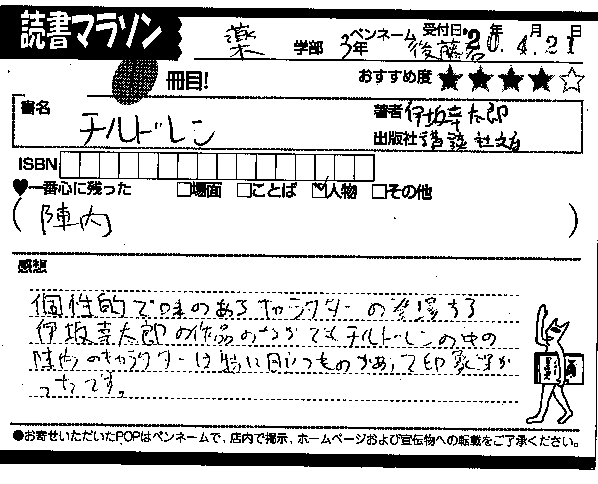 読書マラソン
薬 学部 3年 ペンネーム 後藤君 受付日 '20年 4月21日
冊目!
おすすめ度 ★★★★☆
書名 チルドレン
著者 伊坂幸太郎
出版社 講談社文庫
ISBN
♥一番心に残った □場面 □ことば ☑人物 □その他
(陣内)
感想
個性的で味のあるキャラクターの登場する
伊坂幸太郎の作品のなかでもチルドレンの中の
陣内のキャラクターは特に目立つものがあって印象深か
ったです。
●お寄せいただいたPOPはペンネームで、店内で掲示、ホームページおよび宣伝物への転載をご了承ください。